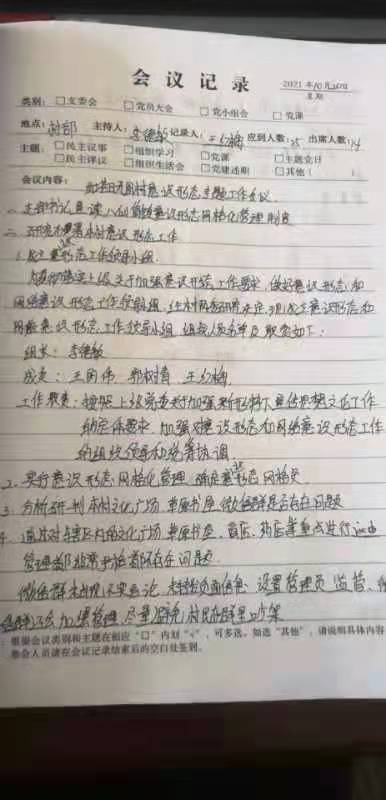 会议记录
2021年10月20日
星期
类别： □支委会 □党员大会 □党小组会 □党课
地点：村部 主持人：李德敏 记录人：王幻梅 应到人数：25 出席人数：24
主题： □民主议事 □组织学习 □党课 □主题党日
□民主评议 □组织生活会 □党建述明 □其他（
会议内容： 意识形态主题工作会议
一、支部书记宣读 意识形态网格化管理制度
二、研究部署本村意识形态工作
1、成立意识形态工作领导小组.
为 落实上级关于加强意识形态工作要求，做好意识形态和
网络意识形态工作 经村两委研究决定，现成立意识形态和
网络意识形态工作领导小组，组成人员名单及职责如下：
组长：李德敏
成员：王国伟 郭树青 王幻梅
工作职责：按照上级党委关于加强新形势下宣传思想文化工作
的总体要求，加强对意识形态和网络意识形态工作
的组织领导和统筹协调
2、实行意识形态网格化管理，确定意识形态网格员
3、分析研判本村文化广场，草原书屋，微信群是否存在问题
4、通过对辖区内的文化广场，草原书屋、商店、药店等重点进行
管理都非常 存在问题.
微信群未出现不实言论，未转发负面信息，设置管理员监管、
加强管理，尽量避免村民在群里吵架
根据会议类别和主题在相应“□”内划“√”，可多选，如选“其他”，请说明具体内容
参会人员请在会议记录结束后的空白处签到。